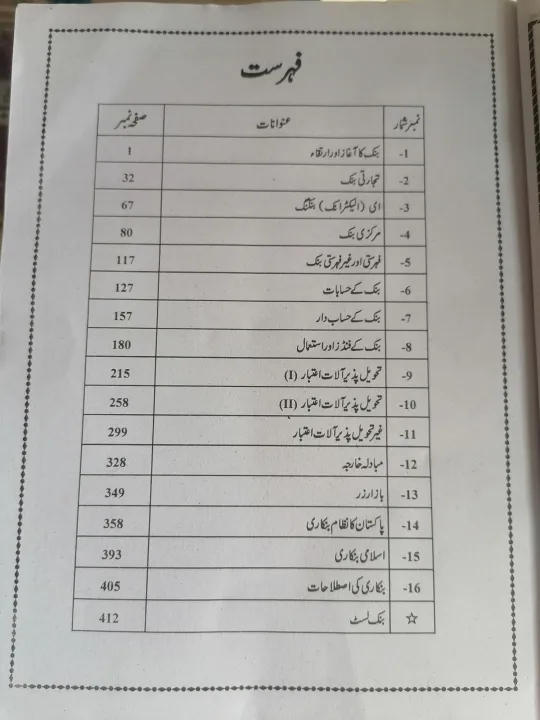 فہرست
نمبر شمار عنوانات صفحہ نمبر
-1 بنک کا آغاز اور ارتقاء 1
-2 تجارتی بنک 32
-3 ای (الیکٹرانک) بنکنگ 67
-4 مرکزی بنک 80
-5 فہرستی اور غیر فہرستی بنک 117
-6 بنک کے حسابات 127
-7 بنک کے حساب دار 157
-8 بنک کے فنڈز اور استعمال 180
-9 تحویل پذیر آلات اعتبار (I) 215
-10 تحویل پذیر آلات اعتبار (II) 258
-11 غیر تحویل پذیر آلات اعتبار 299
-12 مبادلہ خارجہ 328
-13 بازار زر 349
-14 پاکستان کا نظام بنکاری 358
-15 اسلامی بنکاری 393
-16 بنکاری کی اصطلاحات 405
☆ بنک لسٹ 412